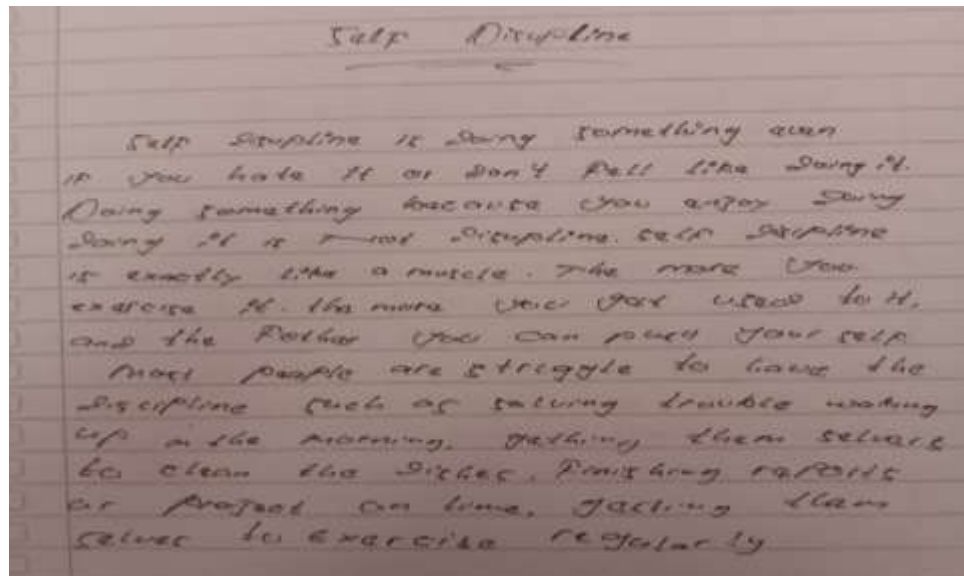 Self Disupline
Self Disupline is Doing something even
if you hate it or Don't fell like Doing it.
Doing something because you enjoy Doing
Doing it is not Disupline. self Disipline
is exactly like a muscle. The more you
exercise it. the more you get used to it,
and the Fother you can push your self
Most people are struggle to have the
Discipline such as trouble waking
up in the morning, gething them selvers
to clean the Dishes, Finishing reports
or project on time, getting them
selves to exercise regularly